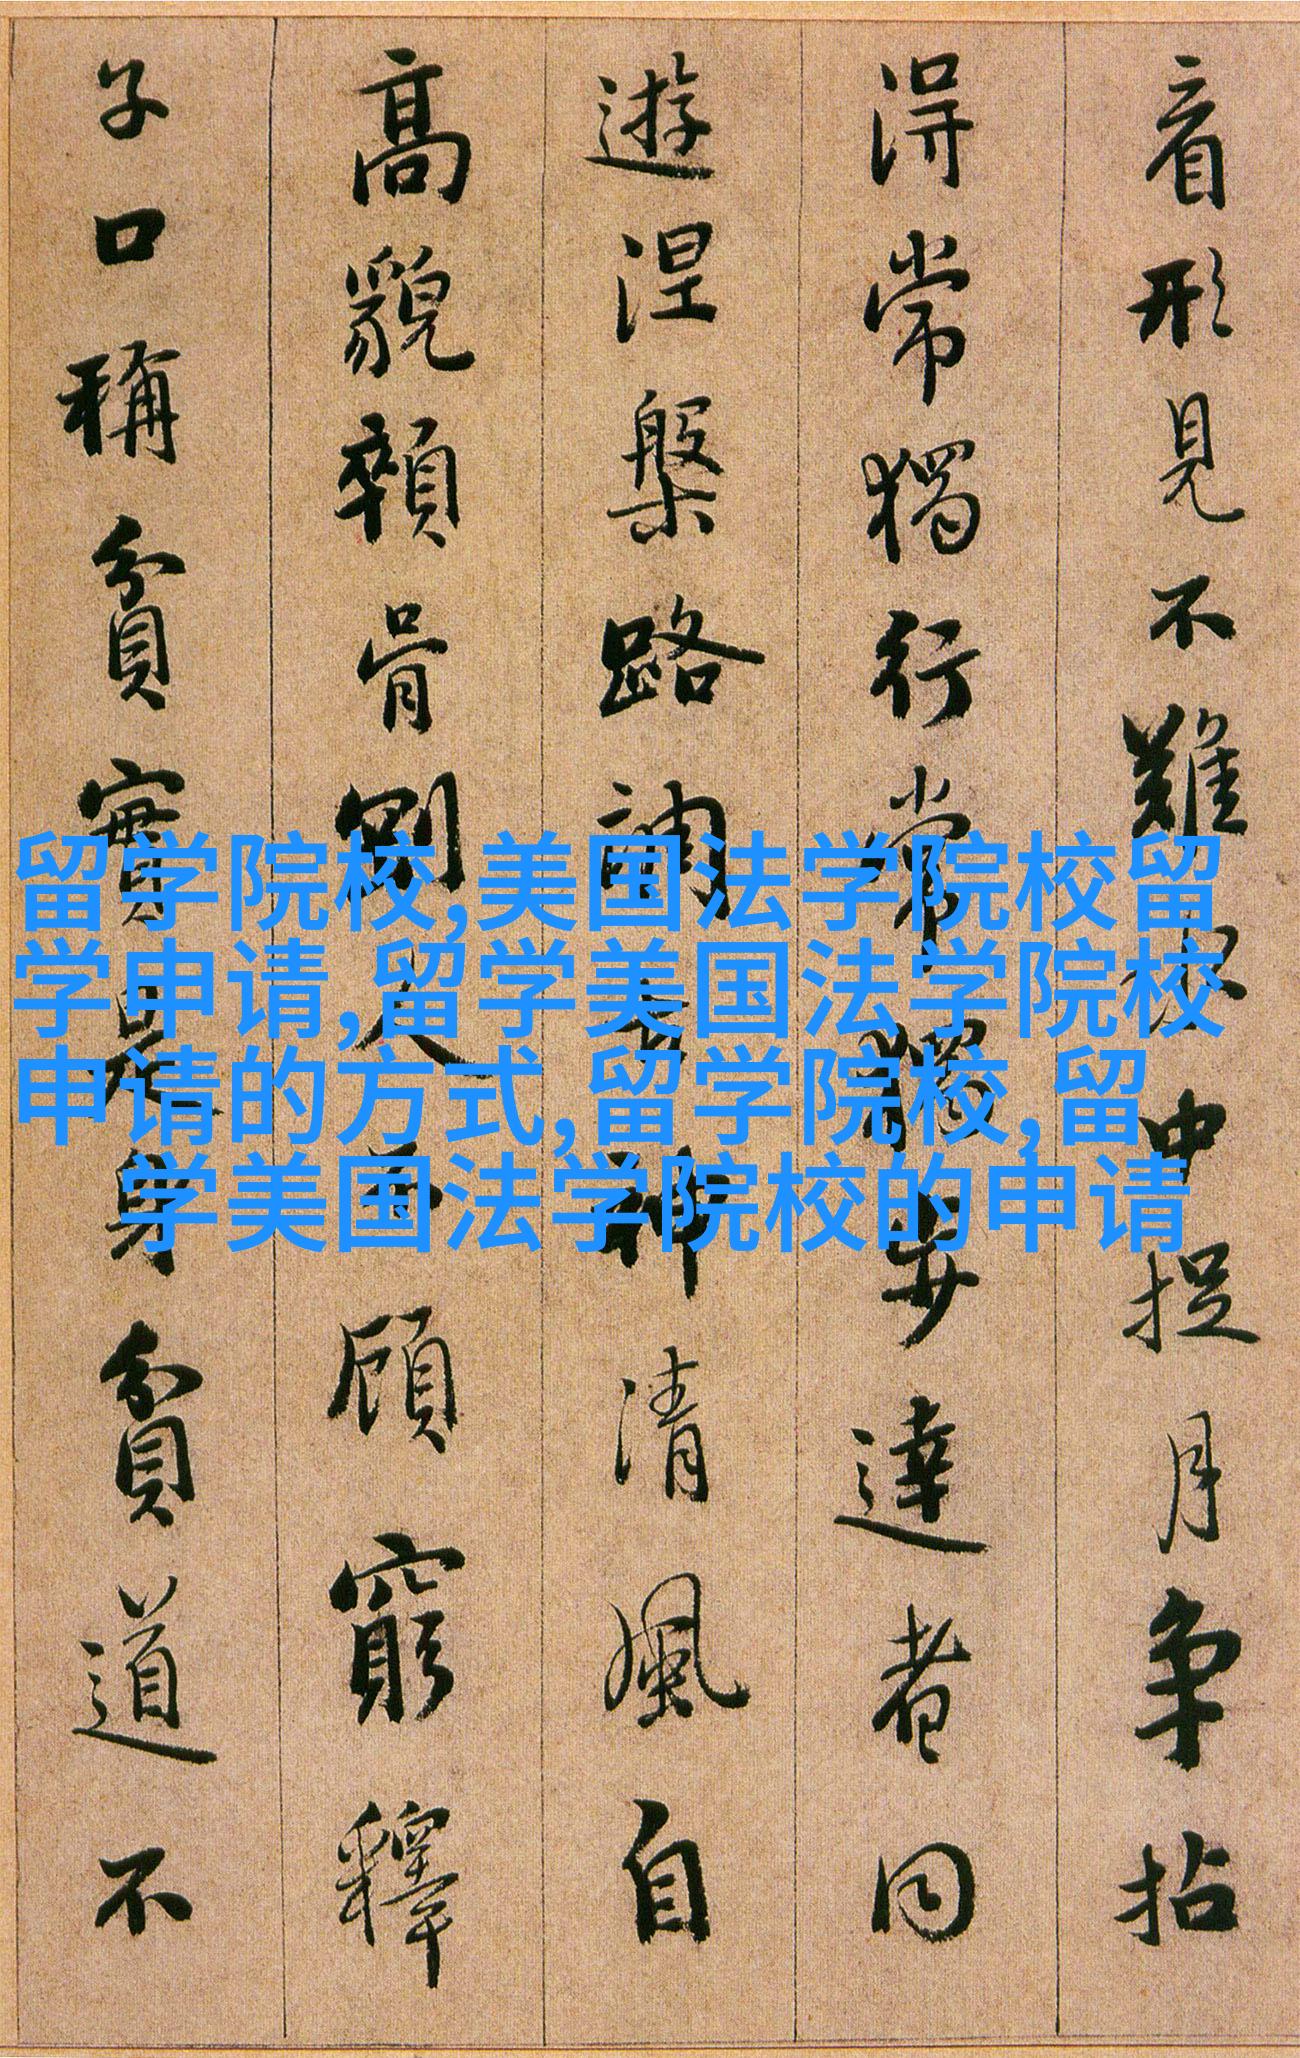 看形見不難水中捉月爭拈
得常獨行常獨步達者同
遊涅槃路調古神清風自
高貌顇骨剛人不顧窮釋
子口稱貧實是身貧道不
留学院校,美国法学院校留
学申请,留学美国法学院校
申请的方式,留学院校,留
学美国法学院校的申请